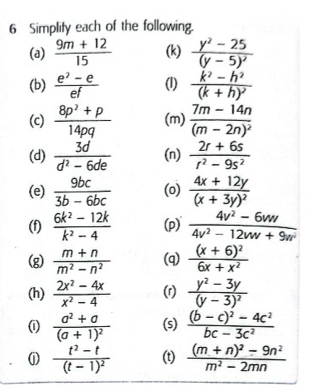 6 Simplify each of the following.
(a) (9m + 12)/15
(b) (e² - e)/ef
(c) (8p² + p)/14pq
(d) 3d/(d² - 6de)
(e) 9bc/(3b - 6bc)
(f) (6k² - 12k)/(k² - 4)
(g) (m + n)/(m² - n²)
(h) (2x² - 4x)/(x² - 4)
(i) (a² + a)/(a + 1)²
(j) (t² - t)/(t - 1)²
(k) (y² - 25)/(y - 5)²
(l) (k² - h²)/(k + h)²
(m) (7m - 14n)/(m - 2n)²
(n) (2r + 6s)/(r² - 9s²)
(o) (4x + 12y)/(x + 3y)²
(p) (4v² - 6vw)/(4v² - 12vw + 9w
(q) (x + 6)²/(6x + x²)
(r) (y² - 3y)/(y - 3)²
(s) ((b - c)² - 4c²)/(bc - 3c²)
(t) ((m + n)² - 9n²)/(m² - 2mn)